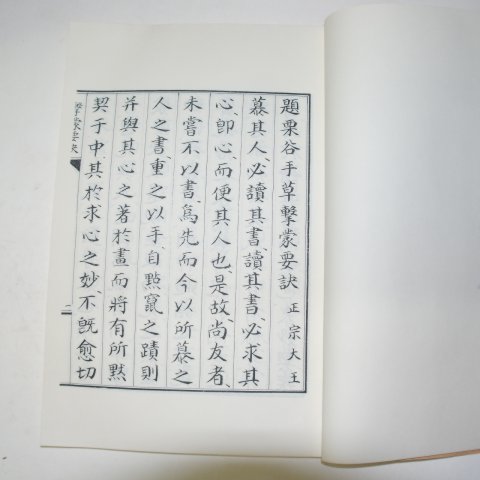 題栗谷手草擊蒙要訣 正宗大王
慕其人、必讀其書、讀其書、必求其
心、卽心、而便其人也、是故、尚友者、
未嘗不以書、爲先而今以所慕之
人之書、重之以手、自點竄之蹟則
并與其心之著於畫而將有所默
契于中、其於求心之妙、不旣愈切
擊蒙要訣
二